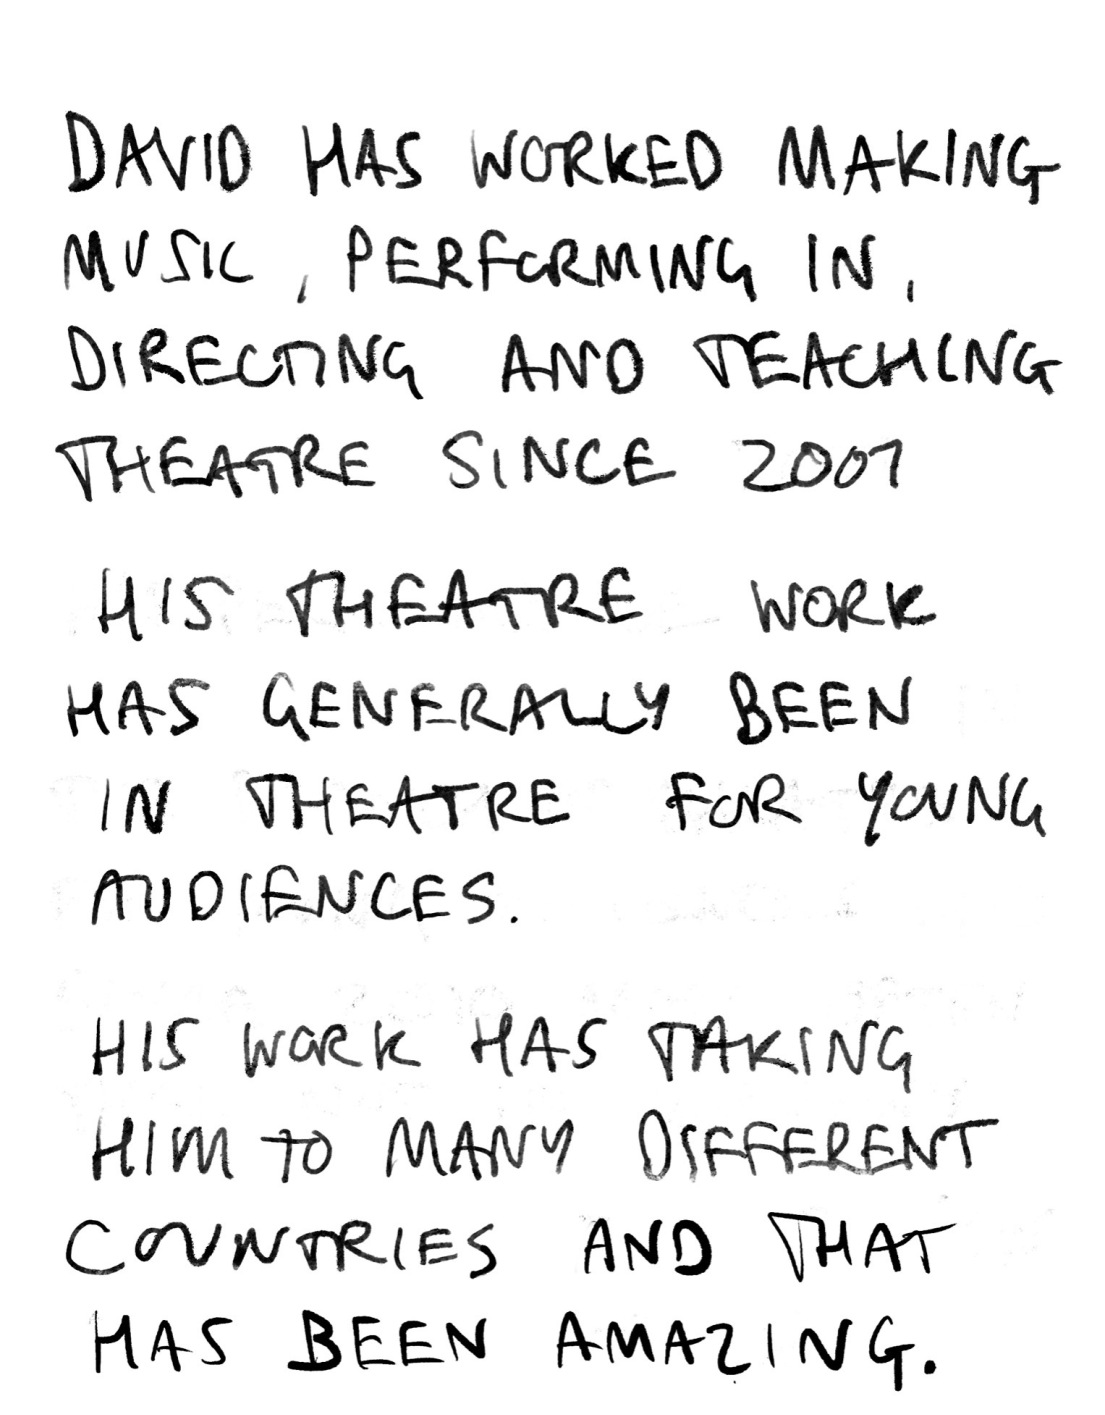 DAVID HAS WORKED MAKING
MUSIC, PERFORMING IN,
DIRECTING AND TEACHING
THEATRE SINCE 2001
HIS THEATRE WORK
HAS GENERALLY BEEN
IN THEATRE FOR YOUNG
AUDIENCES.
HIS WORK HAS TAKING
HIM TO MANY DIFFERENT
COUNTRIES AND THAT
HAS BEEN AMAZING.